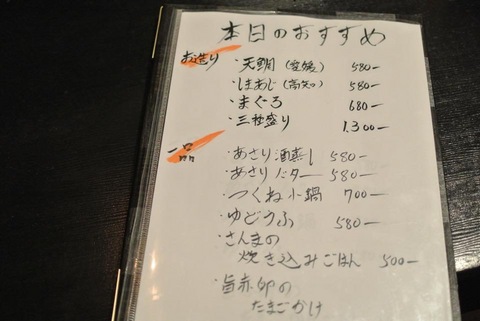 本日のおすすめ
お造り
・天鯛（愛媛） 580-
・しまあじ（高知） 580-
・まぐろ 680-
・三種盛り 1.300-
一品
・あさり酒蒸し 580-
・あさりバター 580-
・つくね小鍋 700-
・ゆどうふ 580-
・さんまの
炊き込みごはん 500-
・旨赤卵の
たまごかけ